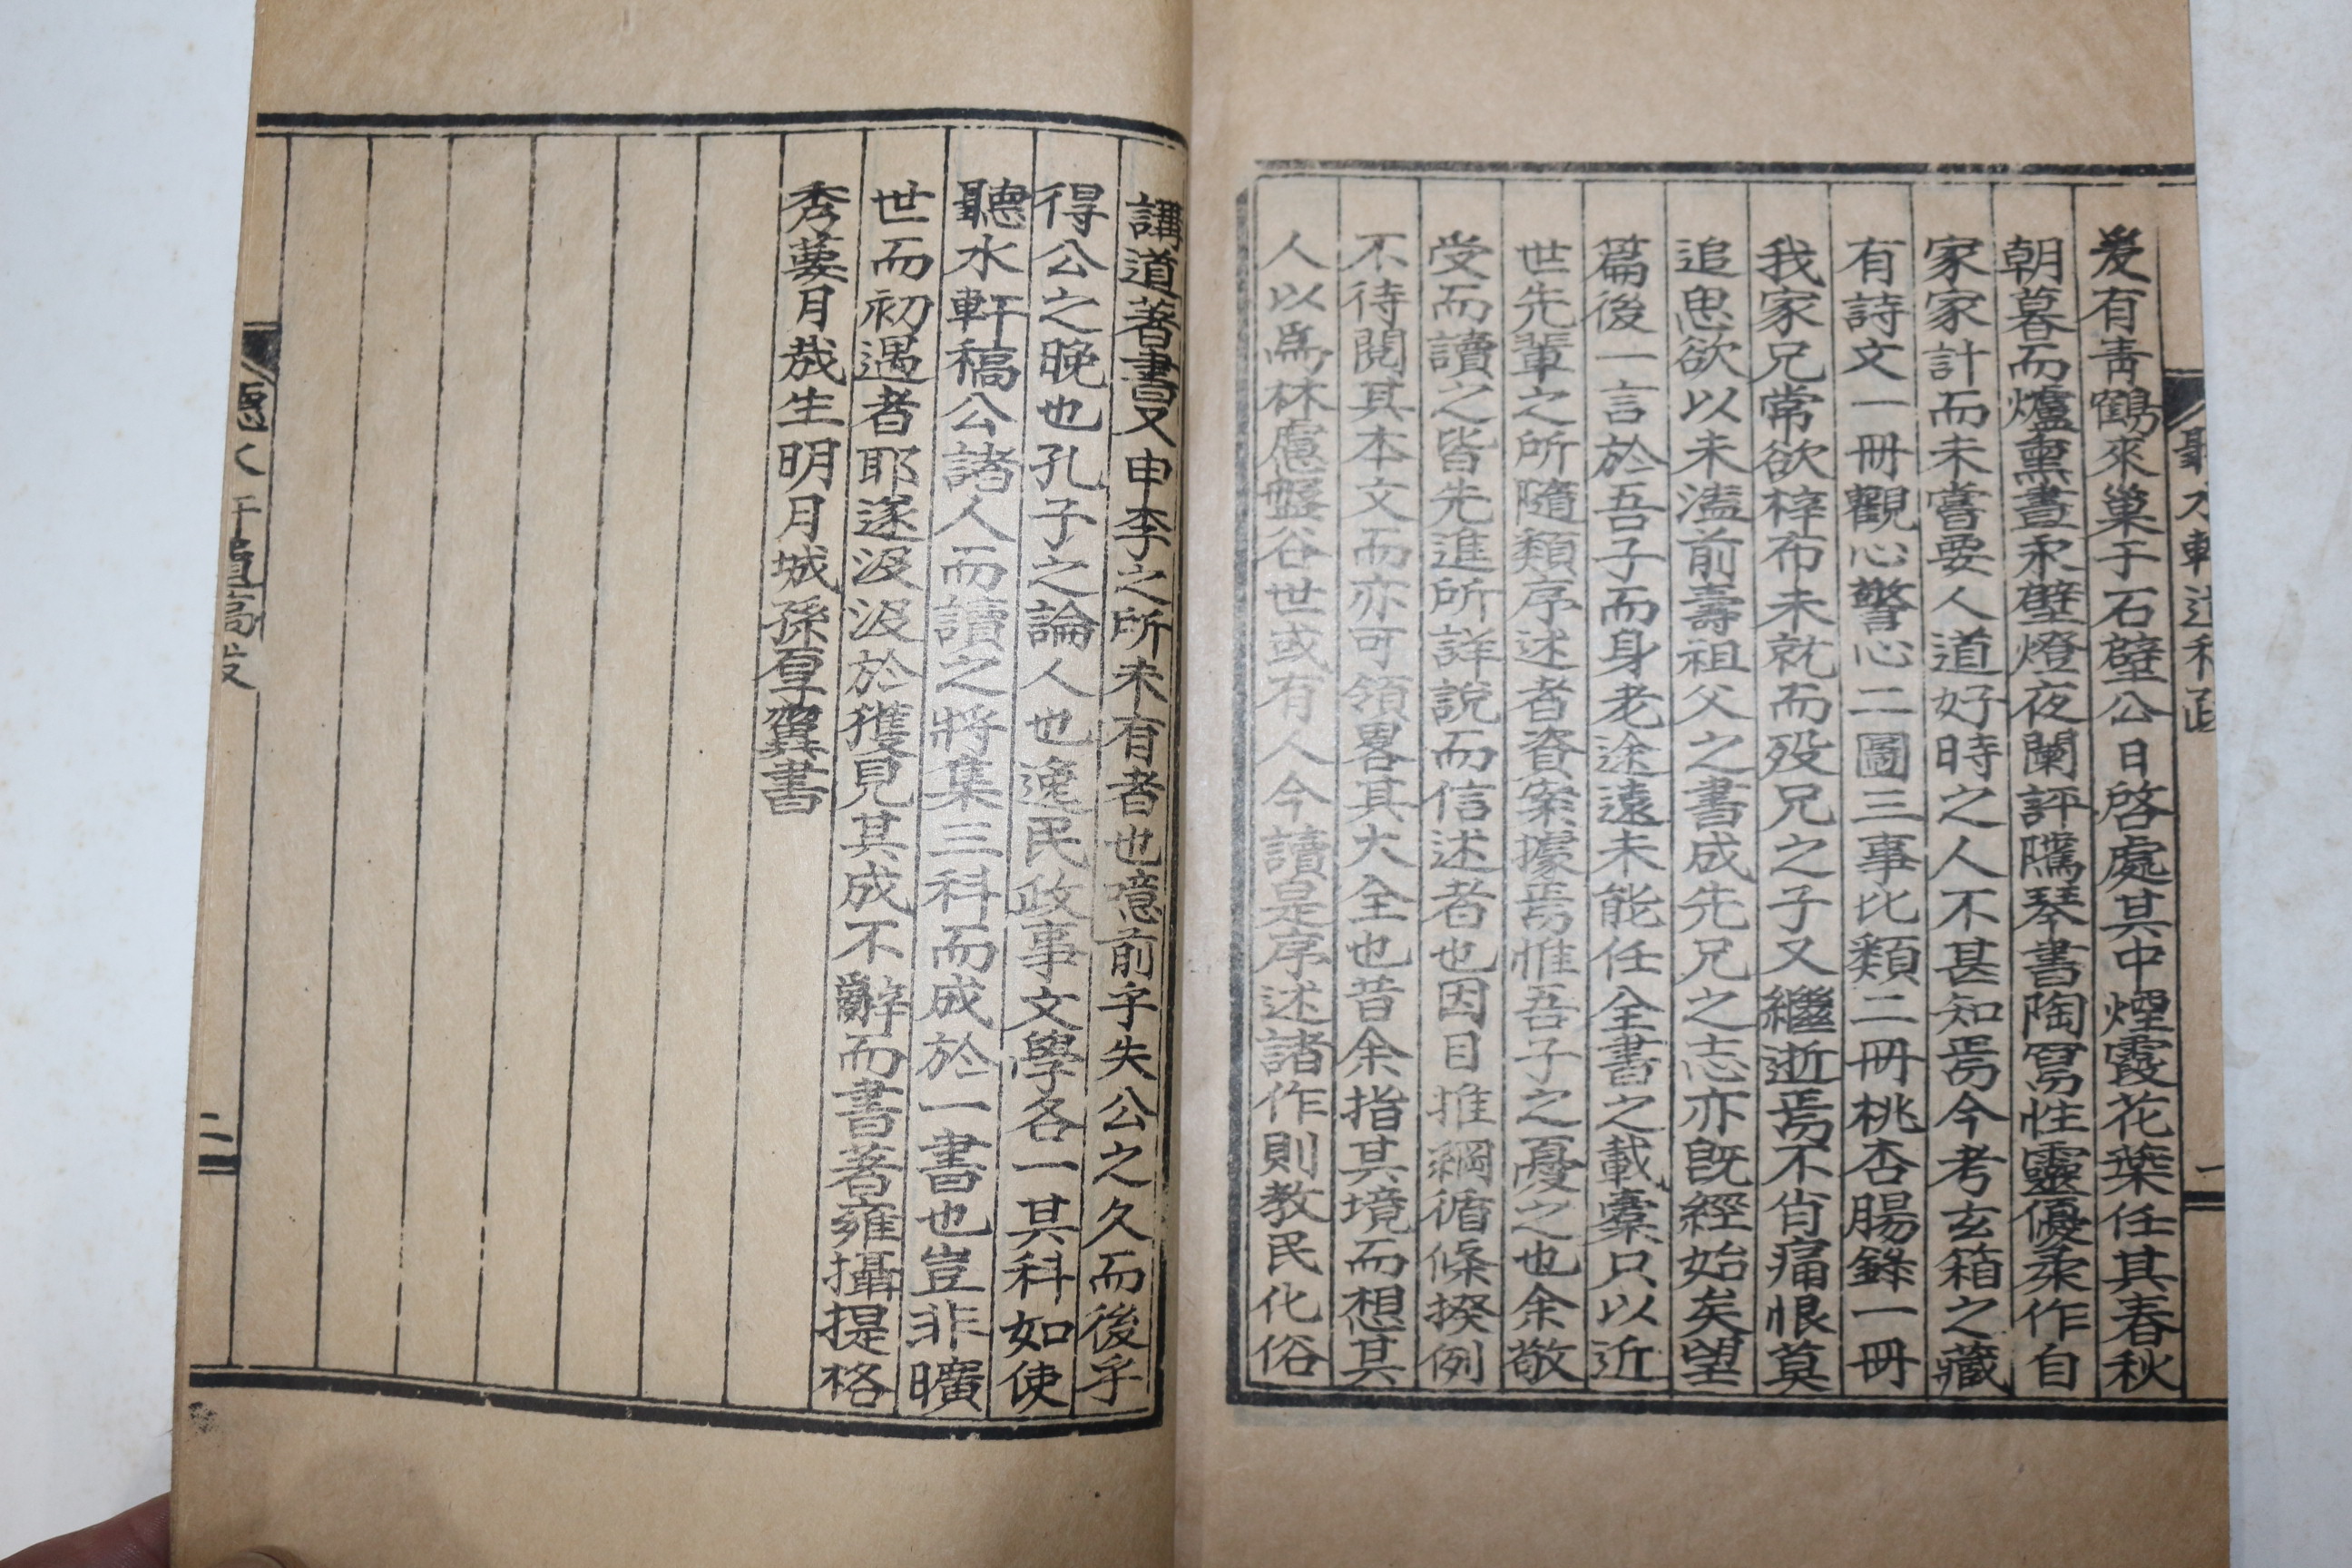 聽水軒遺稿跋
一
爰有靑鶴來巢于石壁公日啓處其中煙霞花葉任其春秋
朝暮而爐熏晝永壁燈夜闌評騭琴書陶寫性靈優柔作自
家家計而未嘗要人道好時之人不甚知焉今考玄箱之藏
有詩文一冊觀心警心二圖三事比類二冊桃杏腸錄一冊
我家兄常欲梓布未就而歿兄之子又繼逝焉不肖痛恨莫
追思欲以未溘前壽祖父之書成先兄之志亦旣經始矣望
篇後一言於吾子而身老途遠未能任全書之載橐只以近
世先輩之所隨類序述者資案據焉惟吾子之憂之也余敬
受而讀之皆先進所詳說而信述者也因目推綱循條揆例
不待閱其本文而亦可領畧其大全也昔余指其境而想其
人以爲林慮盤谷世或有人今讀是序述諸作則敎民化俗
講道著書又申李之所未有者也噫前乎失公之久而後乎
得公之晚也孔子之論人也逸民政事文學各一其科如使
聽水軒稿公諸人而讀之將集三科而成於一書也豈非曠
世而初遇者耶遂汲汲於獲見其成不辭而書著雍攝提格
秀葽月哉生明月城孫厚翼書
聽水軒遺稿跋
二